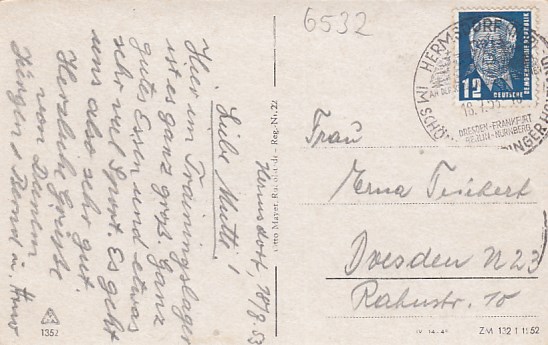 6532
Hermsdorf, 18/7.53
Liebe Mutti!
Hier im Trainingslager
ist es ganz groß. Ganz
gutes Essen und etwas
sehr viel Sport. Es geht
uns also sehr gut.
Herzliche Grüße
von Deinem
Jürgen u. Bernd u.
Otto Mayer, Reg.-Nr. 22
1352
12
DEUTSCHE
DEMOKRATISCHE REPUBLIK
HERMSDORF
IM SCHÖ
DRESDEN-FRANKFURT
BERLIN-NÜRNBERG
Frau
Erna
Dresden N23
Rahnstr. 10
ZM 132 1 1152